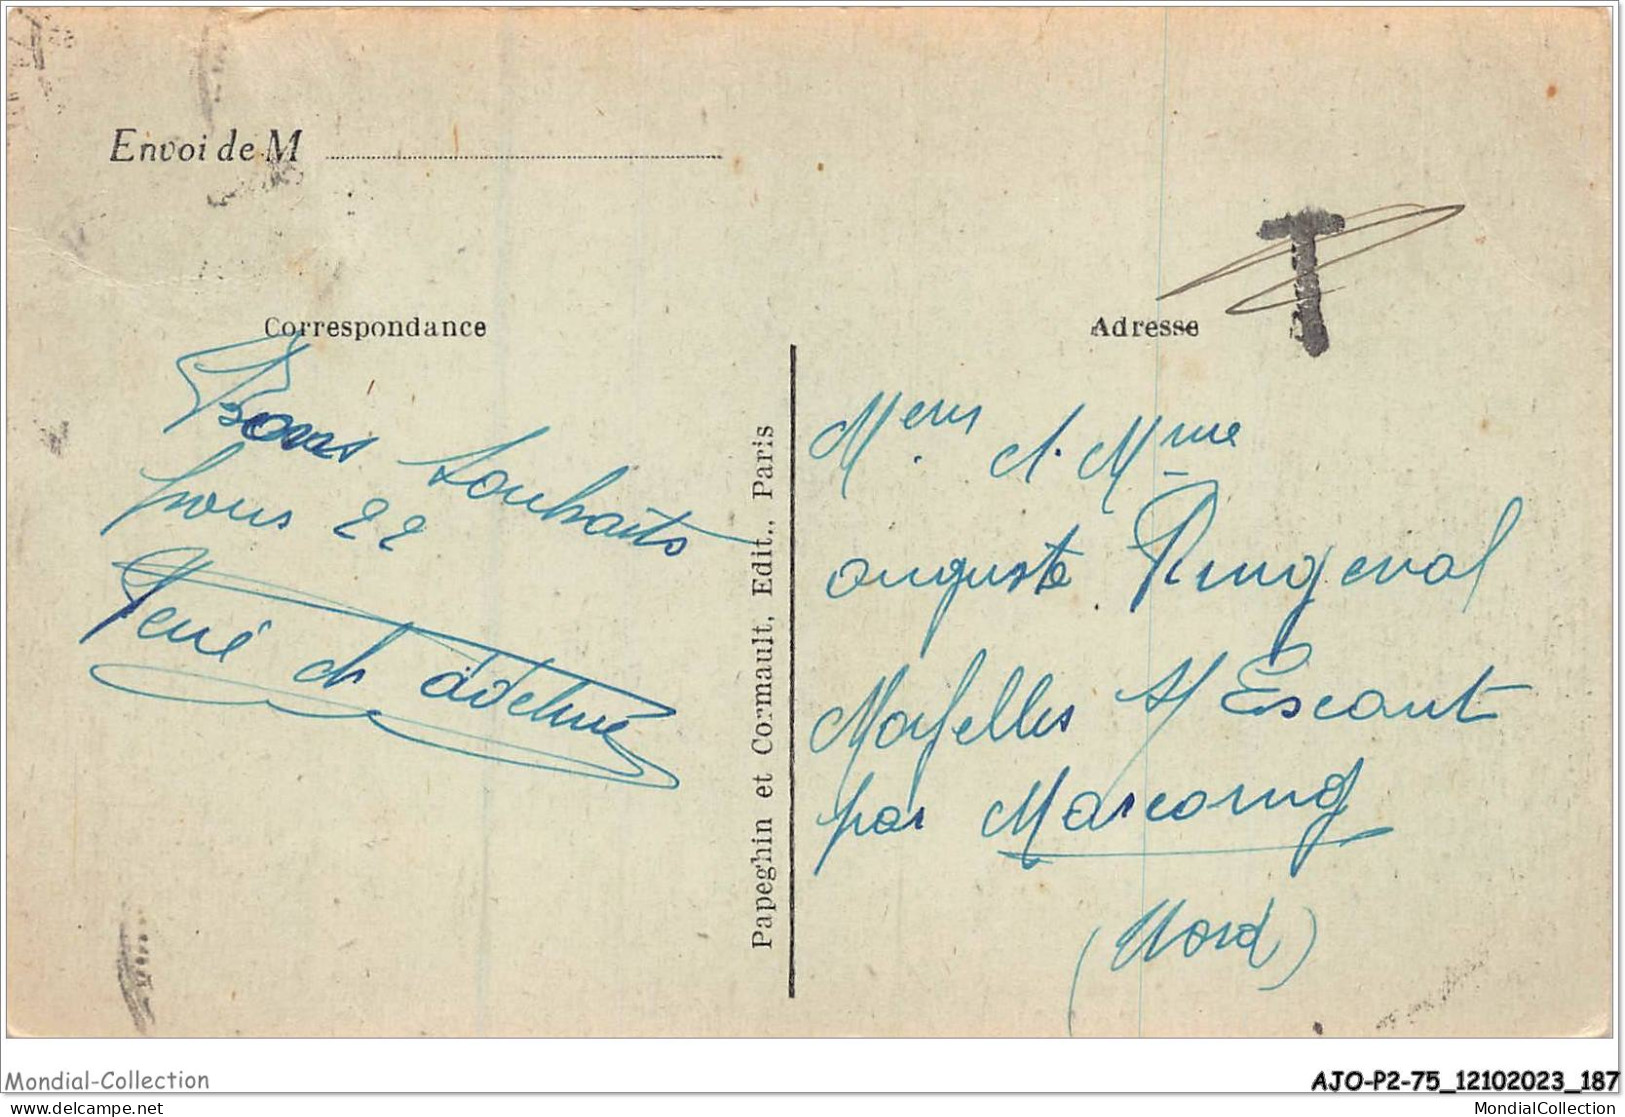 Envoi de M
T
Correspondance
Bons souhaits
pour 22
René et Adeline
Papeghin et Cormault, Edit., Paris
Adresse
Mens et Mme
auguste Ringeval
s/ Escaut
par Marcoing
(Nord)
Mondial-Collection
AJO-P2-75_12102023_187
www.delcampe.net
MondialCollection